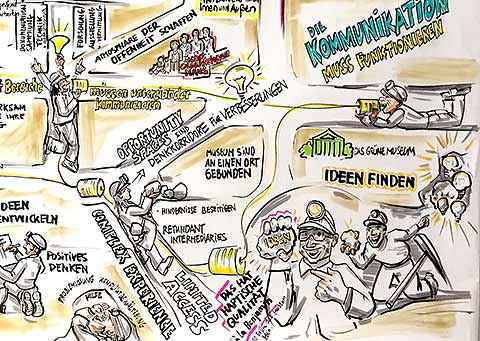 DOKUMENTATION
SAMMLUNG
TECHNIK
FORSCHUNG
AUSSTELLUNG
VERMITTLUNG
ATMOSPHÄRE DER
OFFENHEIT SCHAFFEN
Innen und Außen
DIE
KOMMUNIKATION
MUSS FUNKTIONIEREN
Bereiche
müssen untereinander
kommunizieren
OPPORTUNITY
SPACES SIND
DENKKORRIDORE FÜR VERBESSERUNGEN
MUSEUM SIND
AN EINEN ORT
GEBUNDEN
DAS GRÜNE MUSEUM
IDEEN FINDEN
IDEEN
ENTWICKELN
HINDERNISSE BESEITIGEN
REDUNDANT
INTERMEDIARIES
POSITIVES
DENKEN
HILFE
COMPLEX EXPERIENCE
LIMITED
ACCESS
IDEEN
DAS HA
HAPTISCHE
QUALITÄT
à la Benjamin